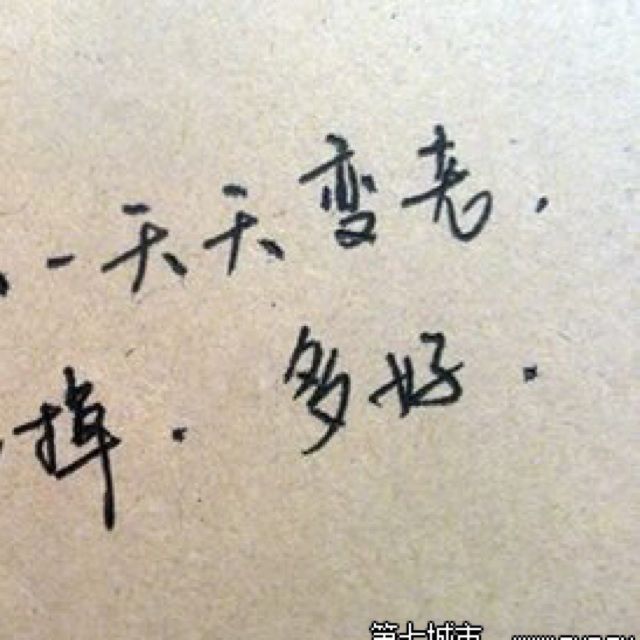 一天天变老,
掉. 多好.
第七城市